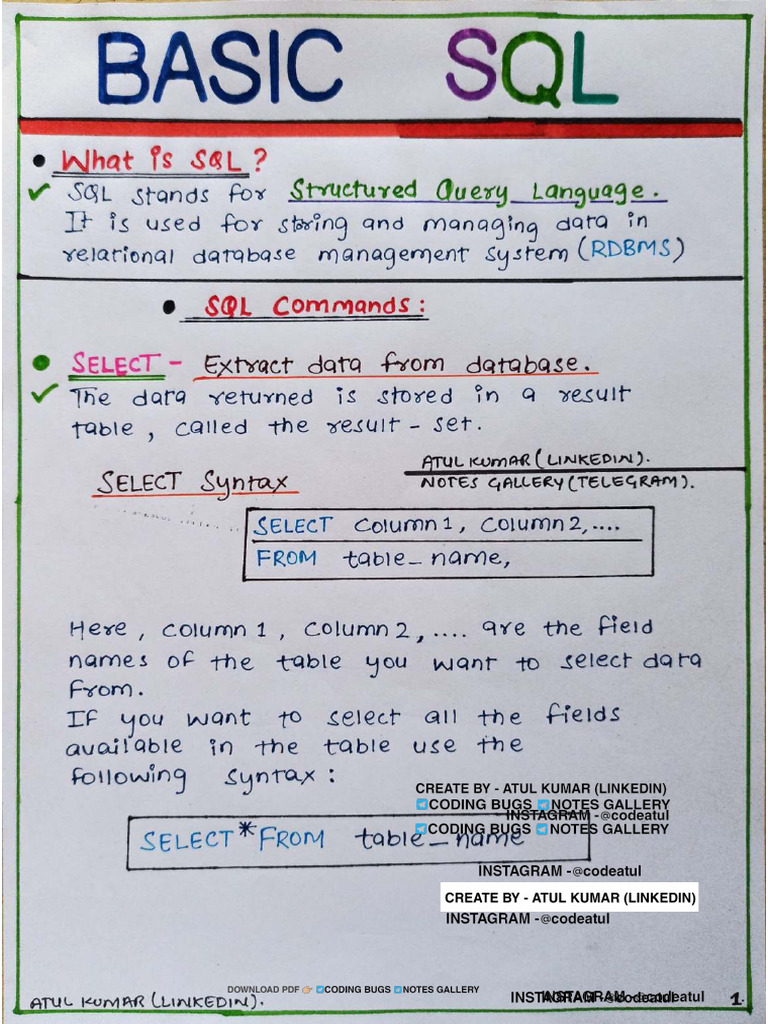 BASIC SQL
• What is SQL ?
✓ SQL stands for Structured Query Language.
It is used for storing and managing data in
relational database management system (RDBMS)
• SQL Commands :
• SELECT - Extract data from database.
✓ The data returned is stored in a result
table, called the result - set.
ATUL KUMAR (LINKEDIN).
SELECT Syntax
NOTES GALLERY (TELEGRAM).
SELECT Column1, Column2,....
FROM table_name,
Here, Column1, Column2, .... are the field
names of the table you want to select data
from.
If you want to select all the fields
available in the table use the
following syntax :
CREATE BY - ATUL KUMAR (LINKEDIN)
CODING BUGS NOTES GALLERY
INSTAGRAM -@codeatul
CODING BUGS NOTES GALLERY
SELECT * FROM table_name
INSTAGRAM -@codeatul
CREATE BY - ATUL KUMAR (LINKEDIN)
INSTAGRAM -@codeatul
DOWNLOAD PDF 👉 CODING BUGS NOTES GALLERY
INSTAGRAM -@codeatul
INSTAGRAM -@codeatul
ATUL KUMAR (LINKEDIN).
1.